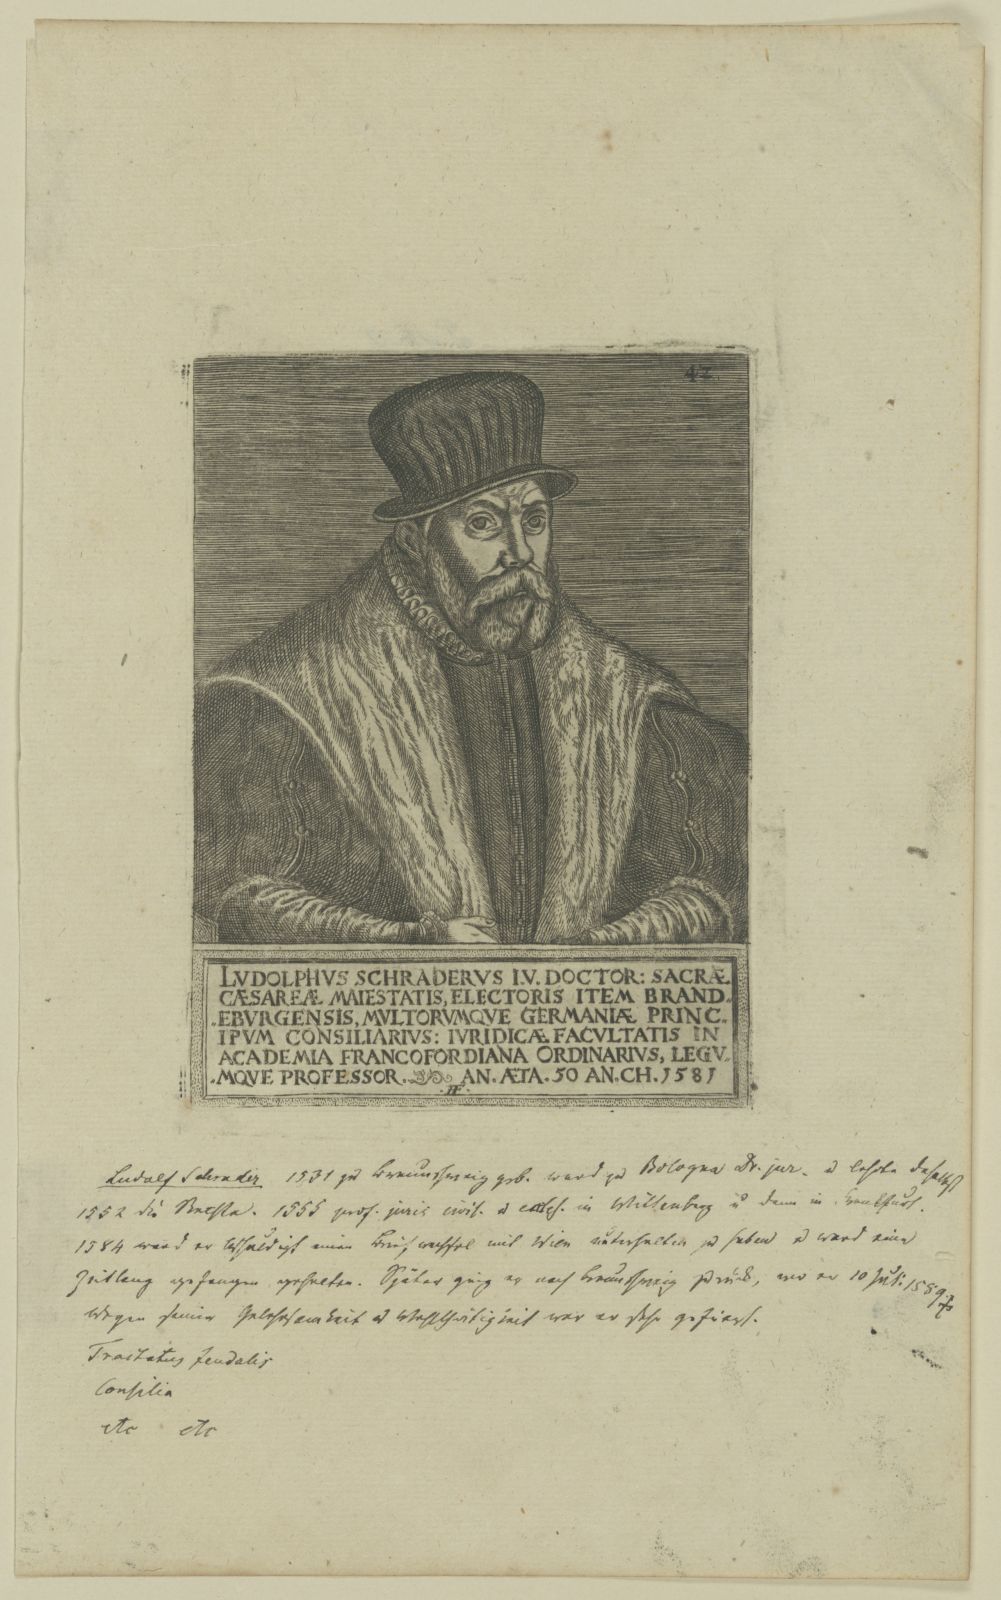 42
LVDOLPHVS SCHRADERVS I.V. DOCTOR: SACRÆ
CÆSAREÆ MAIESTATIS, ELECTORIS ITEM BRAND⸗
⸗EBVRGENSIS, MVLTORVMQVE GERMANIÆ PRINC⸗
IPVM CONSILIARIVS: IVRIDICÆ FACVLTATIS IN
ACADEMIA FRANCOFORDIANA ORDINARIVS, LEGV⸗
⸗MQVE PROFESSOR. AN. ÆTA. 50 AN. CH. 1581
HF
Ludolf Schrader 1531 zu Braunschweig geb. ward zu Bologna Dr. jur. u lehrte daselbst
1552 die Rechte. 1555 prof. juris civil. u in Wittenberg u dann in Frankfurt.
1584 ward er beschuldigt einen Briefwechsel mit Wien unterhalten zu haben u ward eine
Zeitlang gefangen gehalten. Später ging er nach Braunschweig zurück, wo er 10 Juli 1589 †
Wegen seiner Gelehrsamkeit u Wohlthätigkeit war er sehr geschätzt.
Tractatus feudalis
Consilia
etc etc